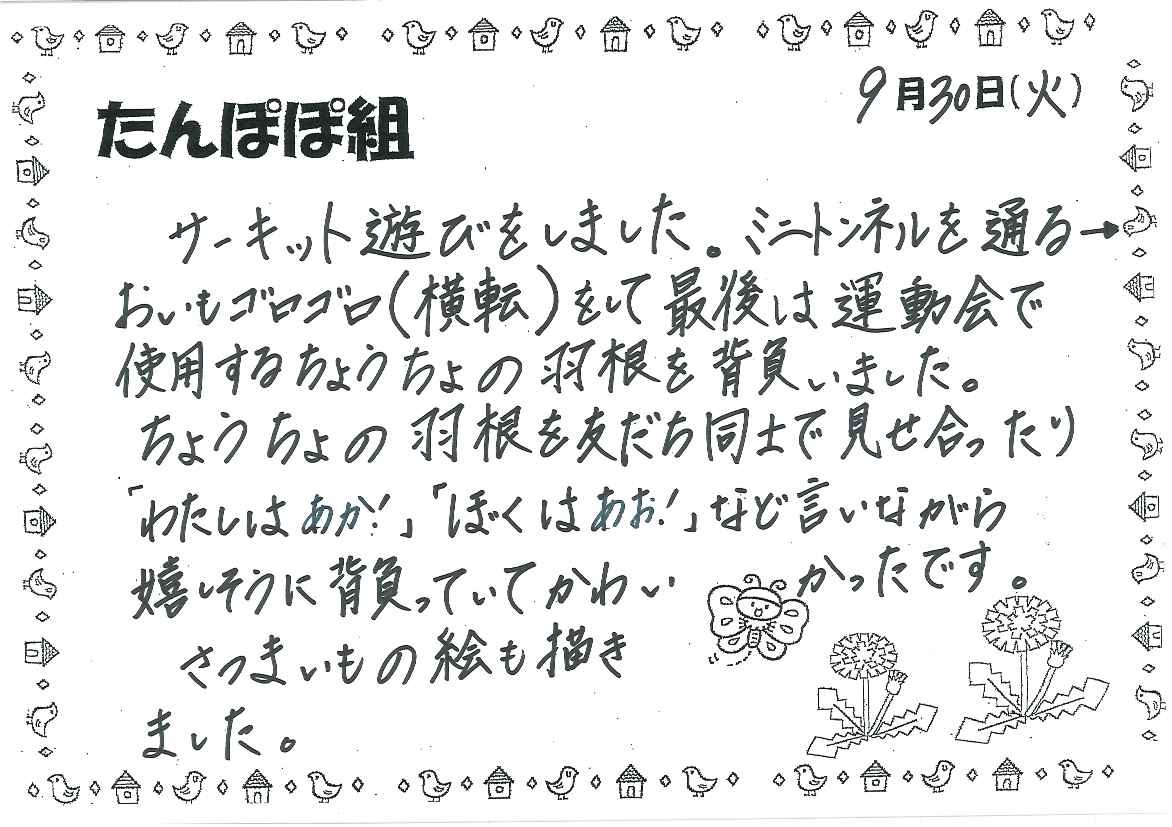 9月30日(火)
たんぽぽ組
サーキット遊びをしました。ミニトンネルを通る→
おいもゴロゴロ(横転)をして最後は運動会で
使用するちょうちょの羽根を背負いました。
ちょうちょの羽根を友だち同士で見せ合ったり
「わたしはあか!」「ぼくはあお!」など言いながら
嬉しそうに背負っていてかわいかったです。
さつまいもの絵も描き
ました。